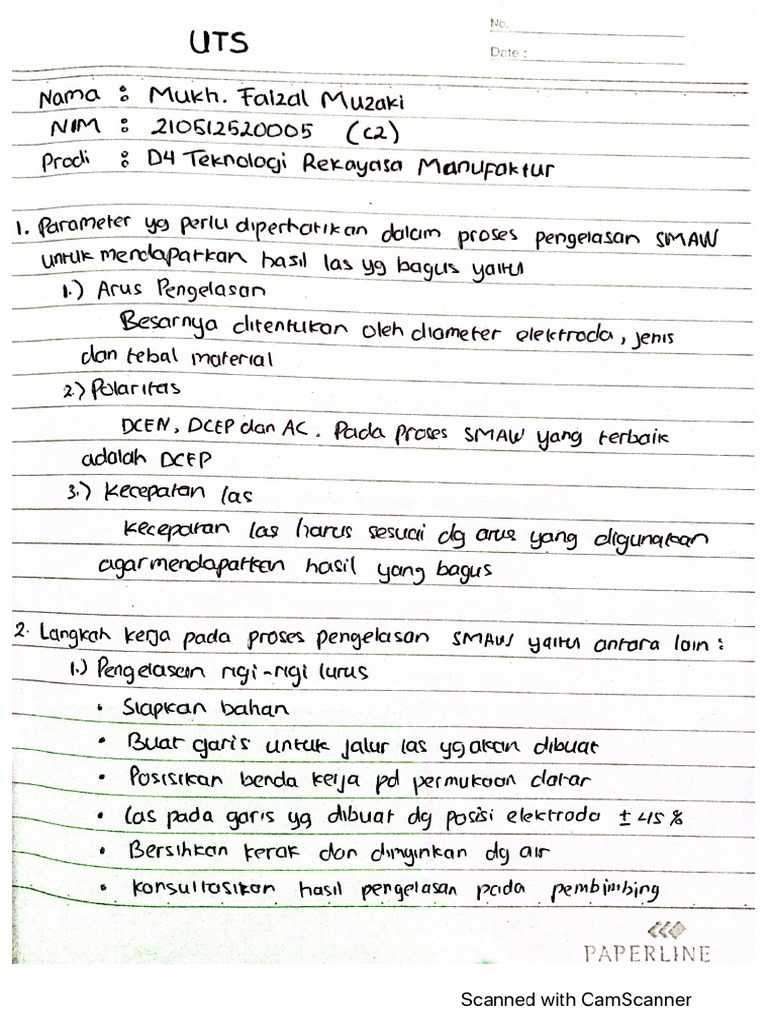 UTS
No.
Date :
Nama : Mukh. Faizal Muzaki
NIM : 210512520005 (C2)
Prodi : D4 Teknologi Rekayasa Manufaktur
1. Parameter yg perlu diperhatikan dalam proses pengelasan SMAW
untuk mendapatkan hasil las yg bagus yaitu
1.) Arus Pengelasan
Besarnya ditentukan oleh diameter elektroda, jenis
dan tebal material
2.) Polaritas
DCEN, DCEP dan AC. Pada proses SMAW yang terbaik
adalah DCEP
3.) Kecepatan las
Kecepatan las harus sesuai dg arus yang digunakan
agar mendapatkan hasil yang bagus
2. Langkah kerja pada proses pengelasan SMAW yaitu antara lain :
1.) Pengelasan rigi-rigi lurus
• Siapkan bahan
• Buat garis untuk jalur las yg akan dibuat
• Posisikan benda kerja pd permukaan datar
• Las pada garis yg dibuat dg posisi elektroda ± 45 %
• Bersihkan kerak dan dinginkan dg air
• Konsultasikan hasil pengelasan pada pembimbing
PAPERLINE
Scanned with CamScanner